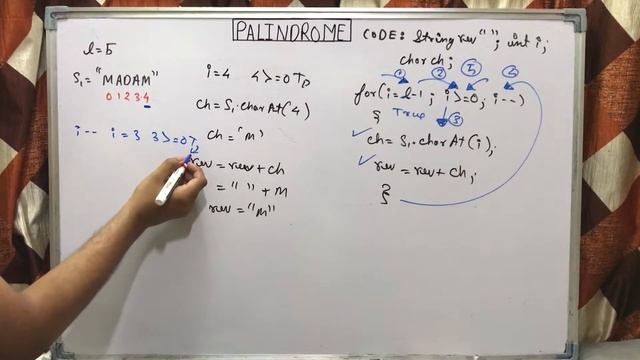 PALINDROME
CODE: String rev " "; int i;
char ch;
l=5
S1="MADAM"
0 1 2 3 4
i-- i=3 3>=0 T
i=4 4>=0 T
ch=S1.charAt(4)
ch="M"
rev=rev+ch
=" "+M
rev="M"
① ② ⑤ ④
for(i=l-1; i>=0; i--)
{ True ③
ch=S1.charAt(i);
rev=rev+ch;
}